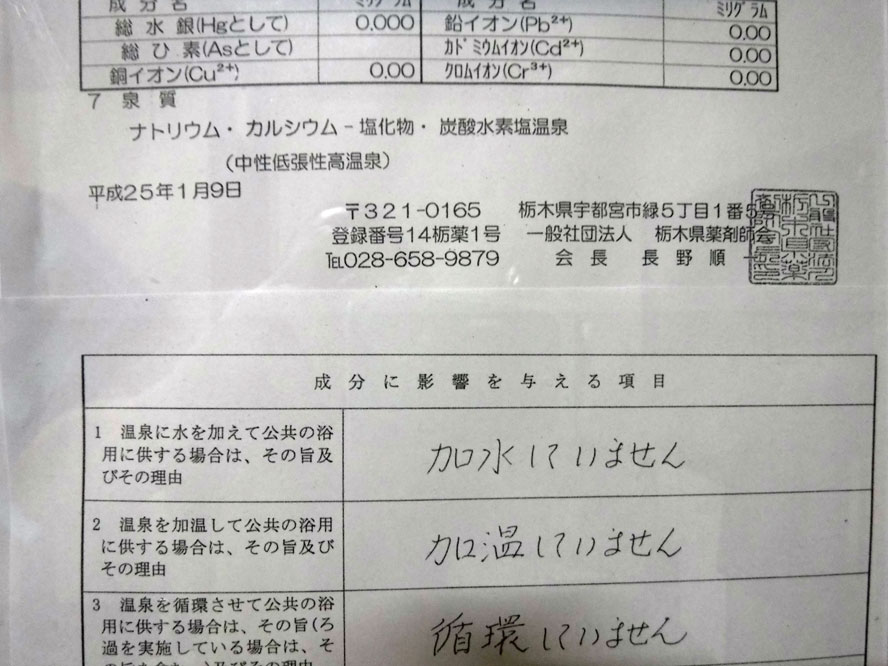 成分名 ミリグラム 成分名 ミリグラム
総水銀(Hgとして) 0.000 鉛イオン(Pb²⁺) 0.00
総ひ素(Asとして) カドミウムイオン(Cd²⁺) 0.00
銅イオン(Cu²⁺) 0.00 クロムイオン(Cr³⁺) 0.00
7 泉質
ナトリウム・カルシウム-塩化物・炭酸水素塩温泉
(中性低張性高温泉)
平成25年1月9日
〒321-0165 栃木県宇都宮市緑5丁目1番5号
登録番号14栃薬1号 一般社団法人 栃木県薬剤師会
℡028-658-9879 会長 長野順一
成分に影響を与える項目
1 温泉に水を加えて公共の浴
用に供する場合は、その旨及
びその理由
加水していません
2 温泉を加温して公共の浴用
に供する場合は、その旨及び
その理由
加温していません
3 温泉を循環させて公共の浴
用に供する場合は、その旨(ろ
過を実施している場合は、そ
循環していません